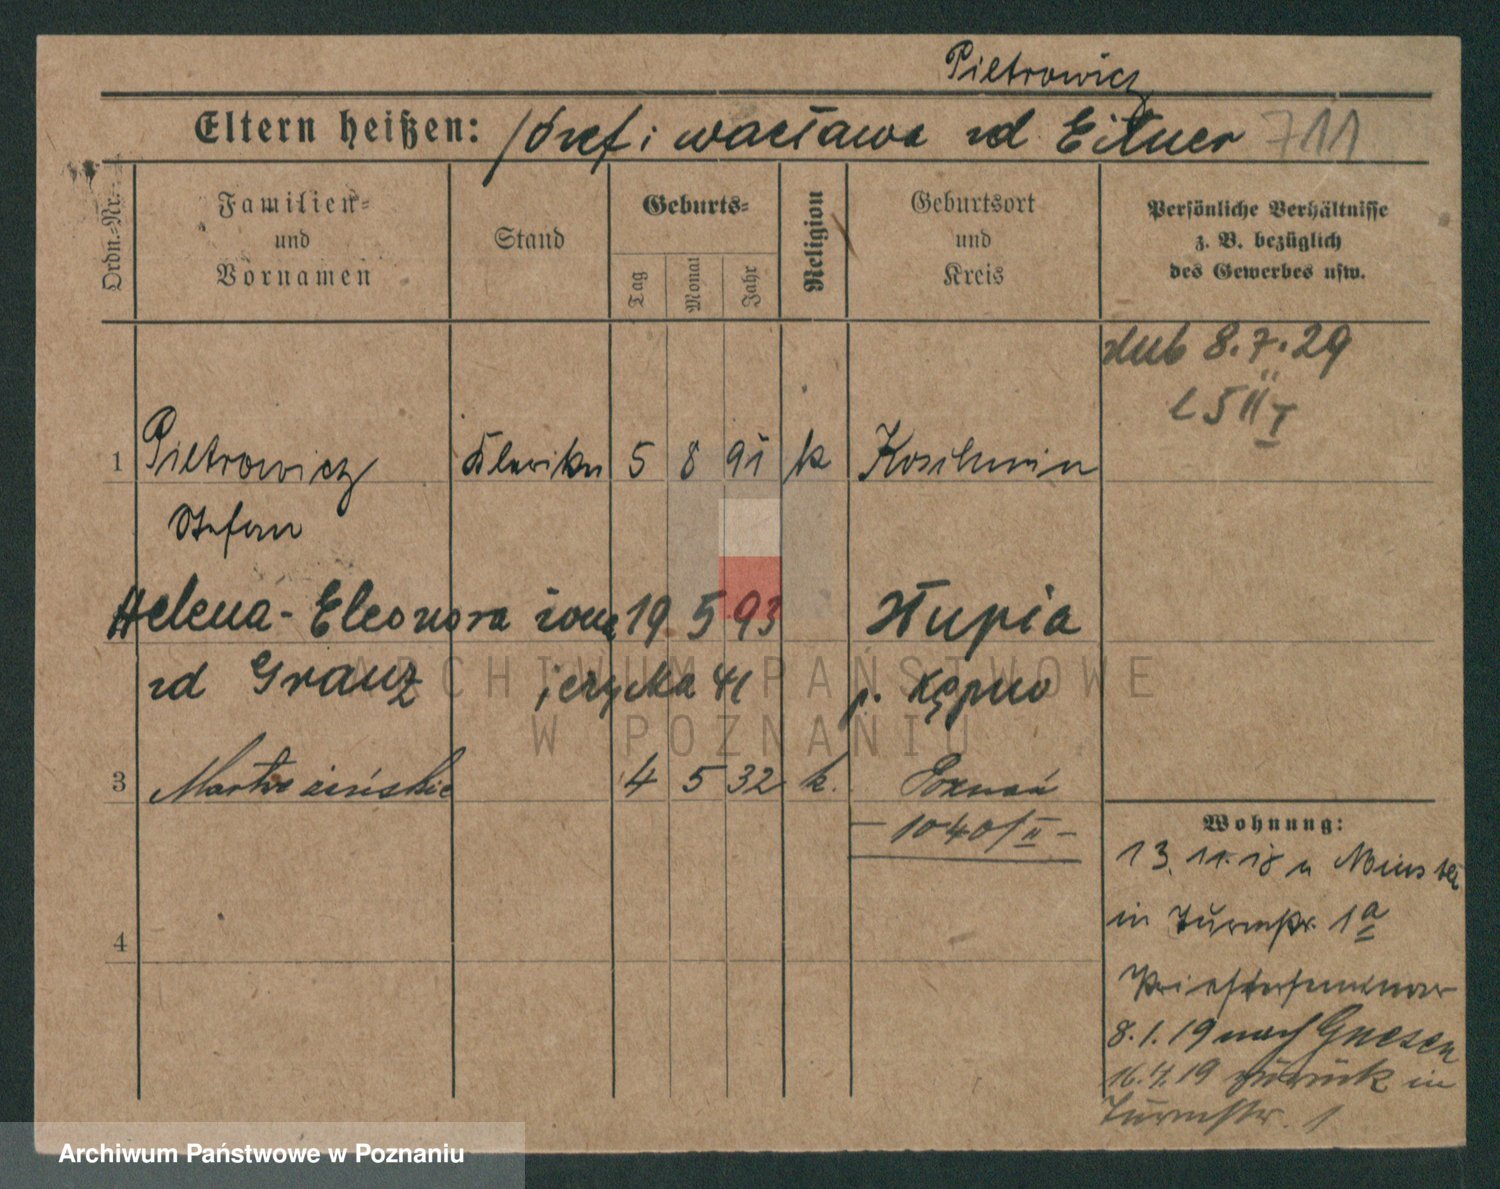 Pietrowicz
Eltern heißen: Józef i wacława zd Eitner 711
Ordn.-Nr.
Familien- und Vornamen
Stand
Geburts-
Tag
Monat
Jahr
Religion
Geburtsort und Kreis
Persönliche Verhältnisse z. B. bezüglich des Gewerbes usw.
ślub 8.7.29
1 Pietrowicz Kleriker 5 8 91 k Koschmin
Stefan
Helena-Eleonora żona 19 5 93 Słupia
zd Granz 41 p. Kępno
3 4 5 32 k. Poznań
- 1040/II -
4
Wohnung:
13.11.18 v Münster
in Turmstr. 1a
Priesterseminar
8.1.19 nach Gnesen
16.4.19 zurück in
Turmstr. 1
ARCHIWUM PAŃSTWOWE
W POZNANIU
Archiwum Państwowe w Poznaniu